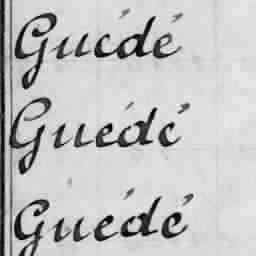 Guédé
Guédé
Guédé